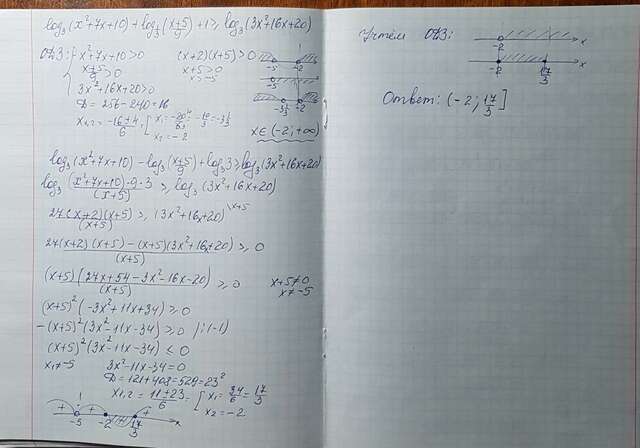 log₃(x²+7x+10) + log₃(x+5)/9 + 1 ≥ log₃(3x²+16x+20)
ОДЗ: { x²+7x+10>0 (x+2)(x+5)>0
(x+5)/9 >0 x+5>0
x>-5
-5 -2
-5
3x²+16x+20>0
D = 256-240=16
-3⅓ -2
x₁,₂ = (-16±4)/6 [ x₁ = -20/6 = -10/3 = -3⅓
x₂ = -2
x∈(-2;+∞)
log₃(x²+7x+10) - log₃(x+5)/9 + log₃3 ≥ log₃(3x²+16x+20)
log₃ (x²+7x+10)·9·3/(x+5) ≥ log₃(3x²+16x+20)
27(x+2)(x+5)/(x+5) ≥ (3x²+16x+20) \x+5
27(x+2)(x+5) - (x+5)(3x²+16x+20)/(x+5) ≥ 0
(x+5)(27x+54-3x²-16x-20)/(x+5) ≥ 0 x+5≠0
x≠-5
(x+5)²(-3x²+11x+34) ≥ 0
-(x+5)²(3x²-11x-34) ≥ 0 /:(-1)
(x+5)²(3x²-11x-34) ≤ 0
x₁≠-5 3x²-11x-34=0
D = 121+408=529=23²
x₁,₂ = (11±23)/6 = [ x₁ = 34/6 = 17/3
x₂ = -2
+ + - +
-5 -2 17/3 x
Учтём ОДЗ:
-2 x
-2 17/3 x
Ответ: (-2; 17/3]